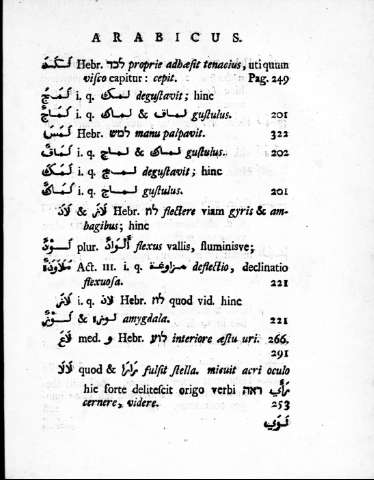 ARABICUS.
Hebr. לכד proprie adhæsit tenacius, uti quum
visco capitur: cepit. Pag. 249
لمج i. q. لمك degustavit; hinc
لماج i. q. لماق & لماك gustulus. 201
لمس Hebr. למש manu palpavit. 322
لماق i. q. لماج & لماك gustulus. 202
لمك i. q. لمج degustavit; hinc
لماك i. q. لماج gustulus. 201
لاذ & لاز Hebr. לוז flectere viam gyris & am-
bagibus; hinc
لوذ plur. ألواذ flexus vallis, fluminisve;
ملاوذة Act. III. i. q. مراوغة deflectio, declinatio
flexuosa. 221
لاز i. q. لاذ Hebr. לוז quod vid. hinc
لوز & لوزة amygdala. 221
لاع med. و Hebr. לוע interiore æstu uri. 266.
291
لالا quod & رارا fulsit stella. micuit acri oculo
hic forte delitescit origo verbi ראה رأي
cernere, videre. 253
لوي